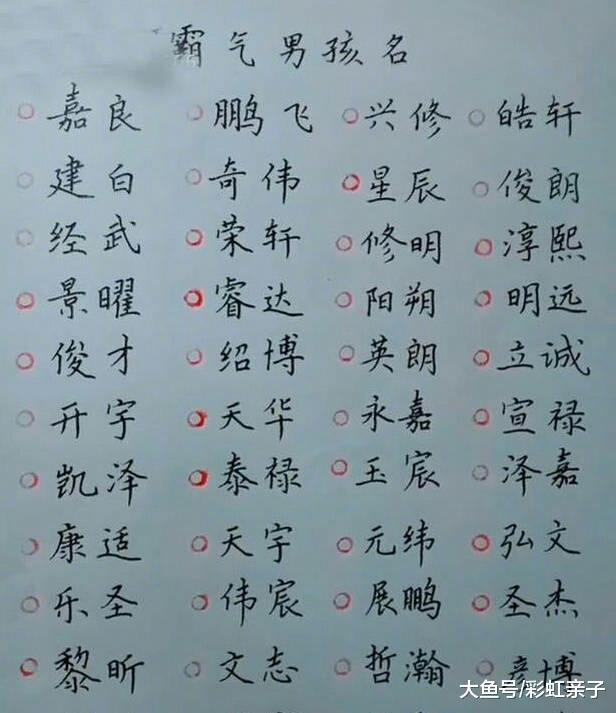 霸气男孩名
嘉良 鹏飞 兴修 皓轩
建白 奇伟 星辰 俊朗
经武 荣轩 修明 淳熙
景曜 睿达 阳朔 明远
俊才 绍博 英朗 立诚
开宇 天华 永嘉 宣禄
凯泽 泰禄 玉宸 泽嘉
康适 天宇 元纬 弘文
乐圣 伟宸 展鹏 圣杰
黎昕 文志 哲瀚 彦博
大鱼号/彩虹亲子